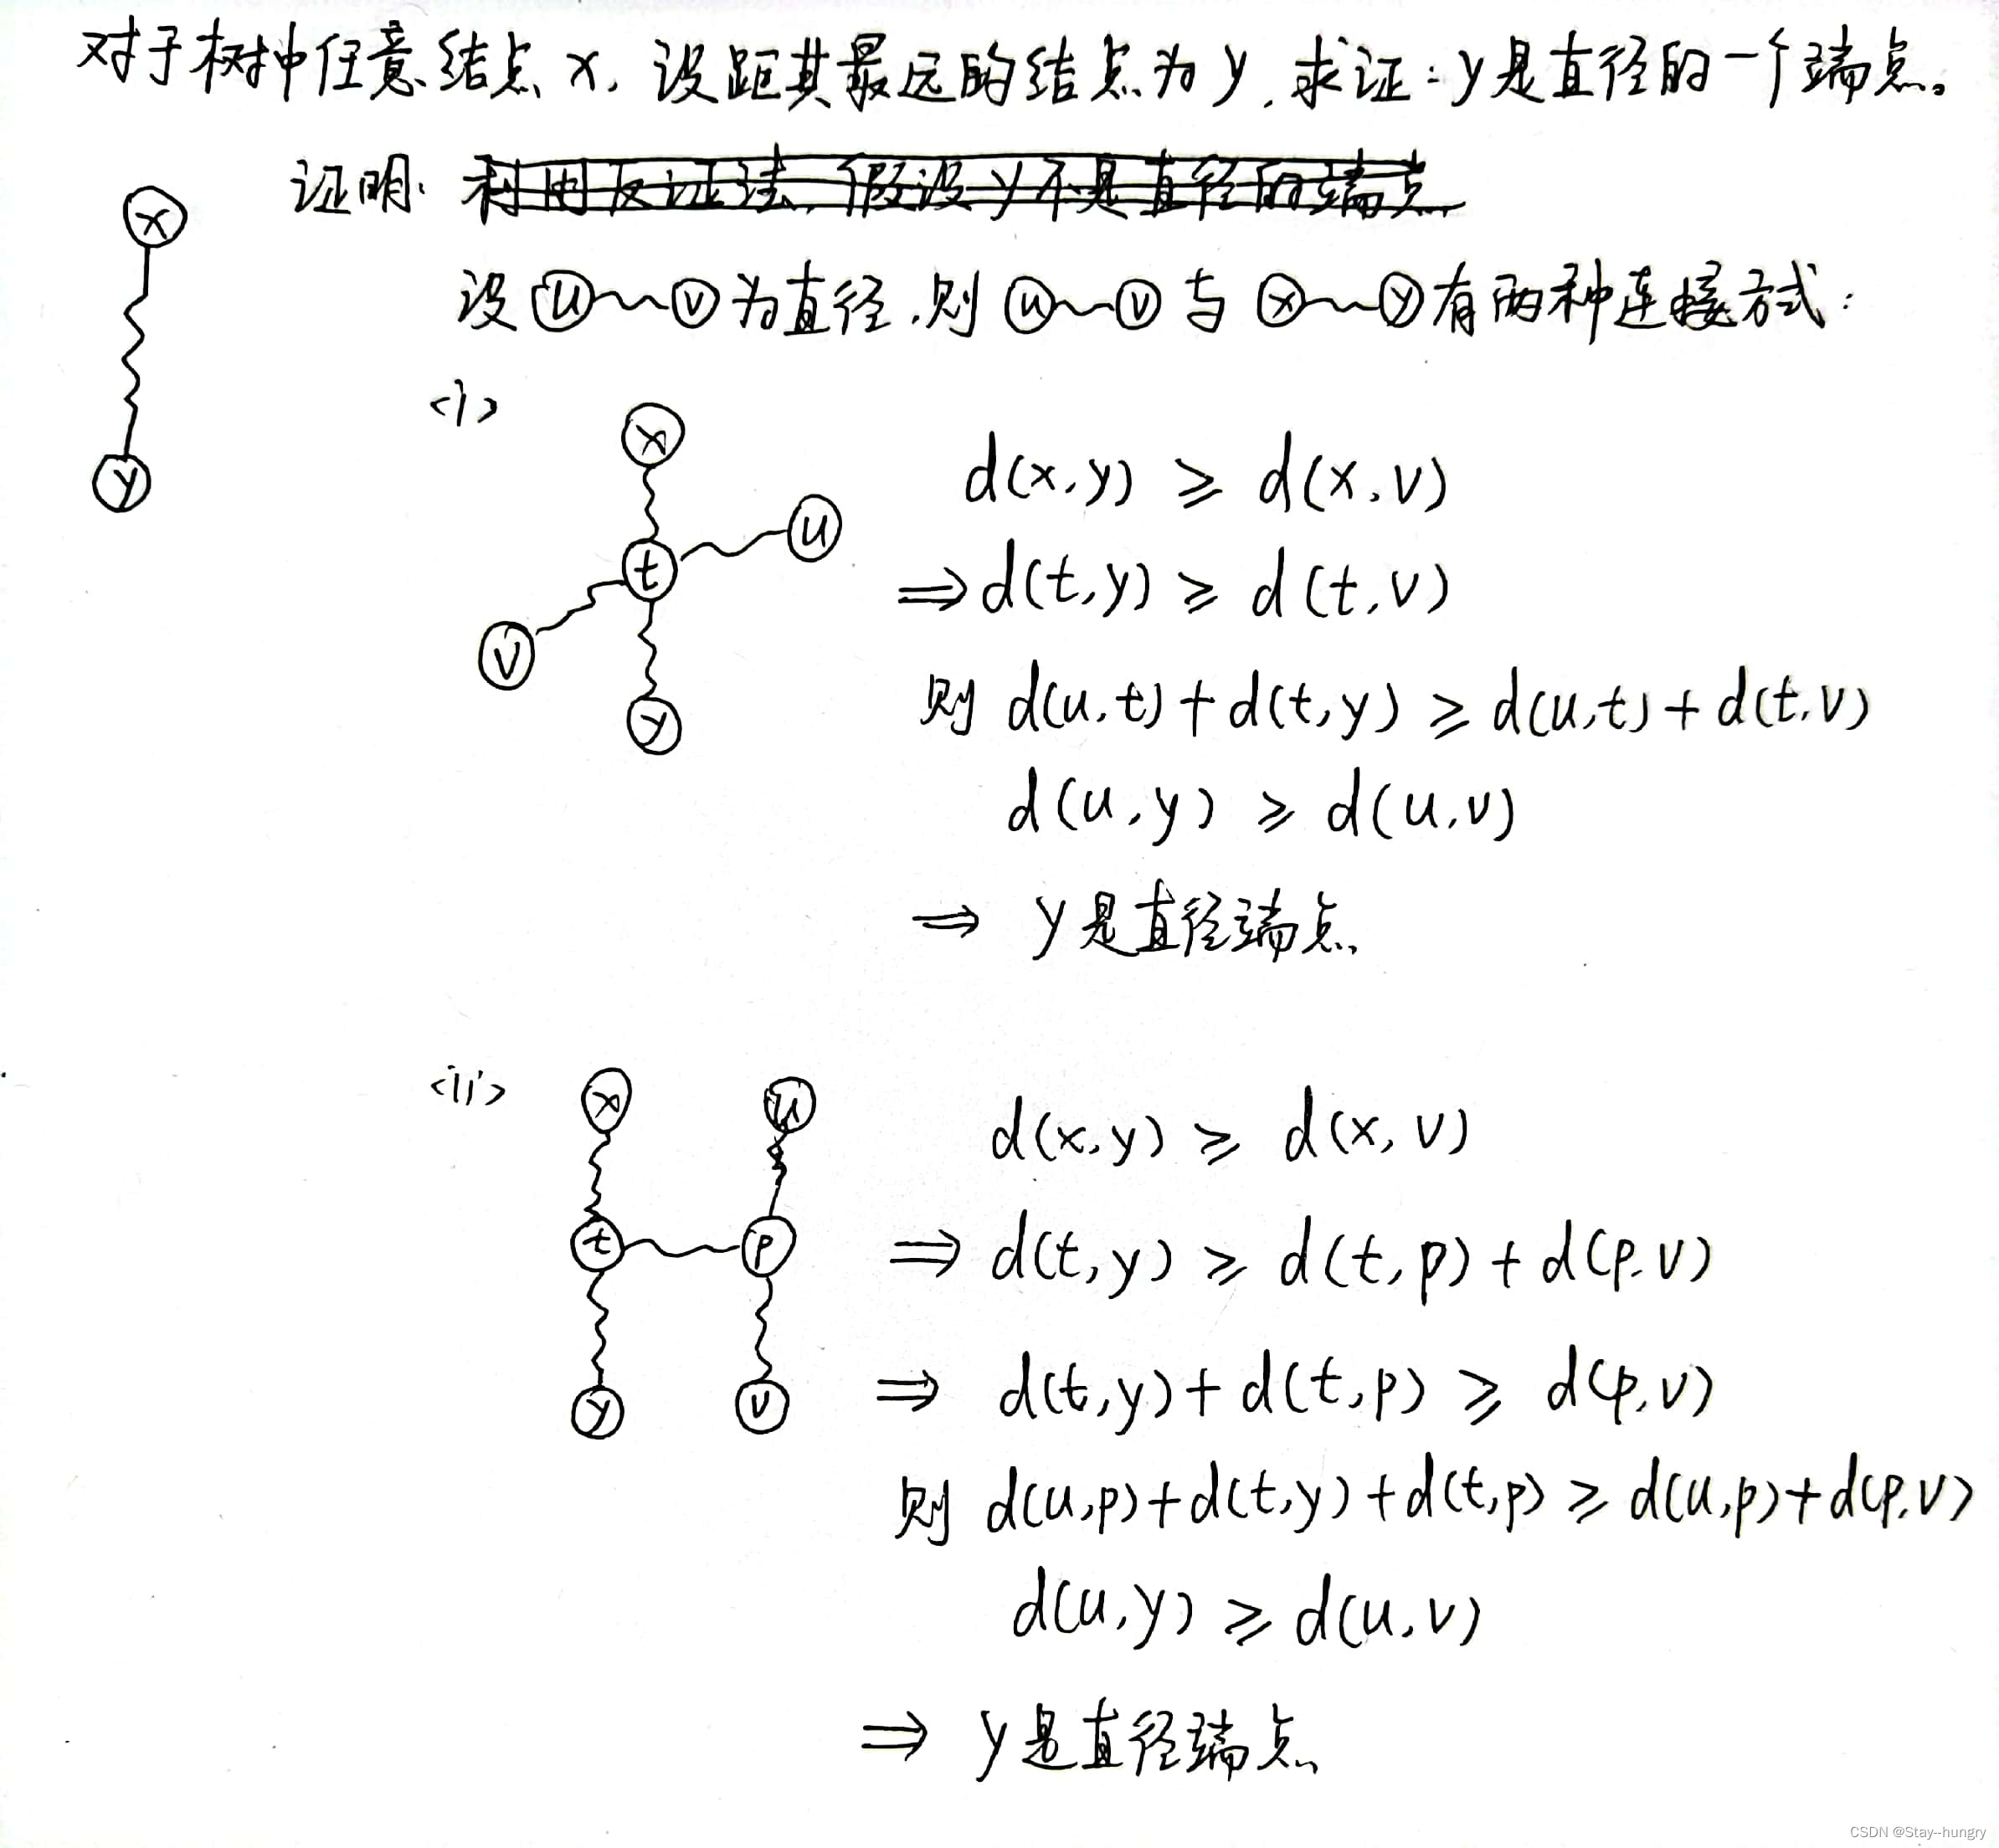 对于树中任意结点 x, 设距其最远的结点为 y, 求证: y是直径的一个端点。
证明: 利用反证法, 假设 y不是直径的端点
x
y
设 u v 为直径, 则 u v 与 x y 有两种连接方式:
<i>
x
u
t
v
y
d(x,y) ≥ d(x,v)
⇒ d(t,y) ≥ d(t,v)
则 d(u,t)+d(t,y) ≥ d(u,t)+d(t,v)
d(u,y) ≥ d(u,v)
⇒ y是直径端点
<ii>
x u
t p
y v
d(x,y) ≥ d(x,v)
⇒ d(t,y) ≥ d(t,p)+d(p,v)
⇒ d(t,y)+d(t,p) ≥ d(p,v)
则 d(u,p)+d(t,y)+d(t,p) ≥ d(u,p)+d(p,v)
d(u,y) ≥ d(u,v)
⇒ y是直径端点
CSDN @Stay--hungry